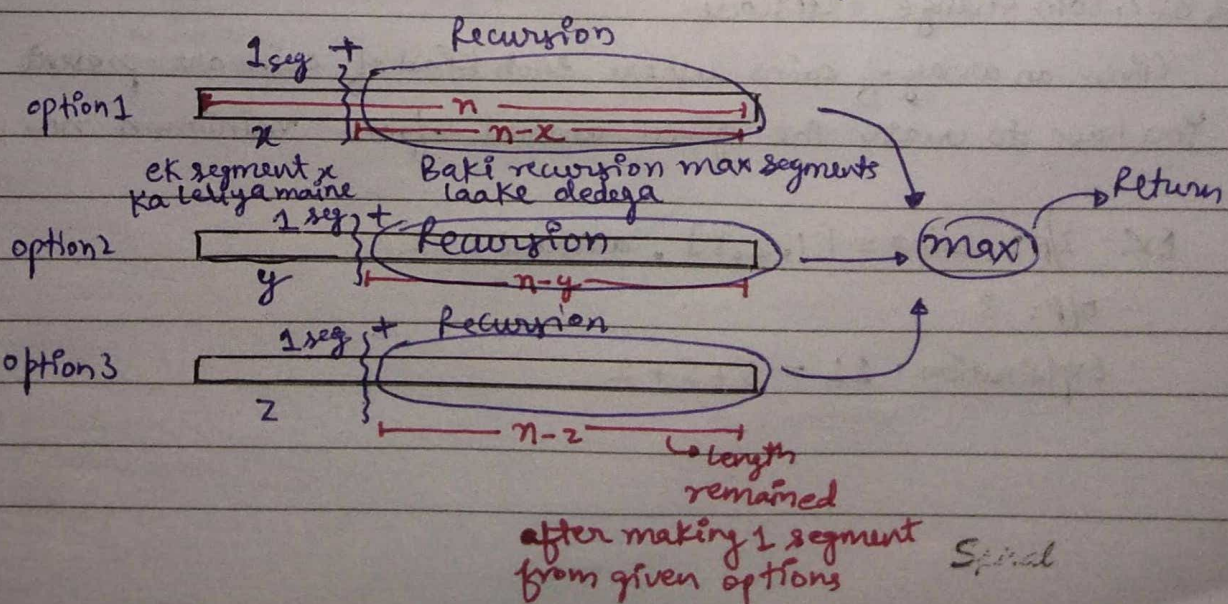 Recursion
1 seg +
option1
n
x
n-x
ek segment x
ka leliya maine
Baki recursion max segments
laake dedega
Return
1 seg +
option2
Recursion
max
y
n-y
1 seg +
Recursion
option3
z
n-z
Length
remained
after making 1 segment
from given options
Spiral